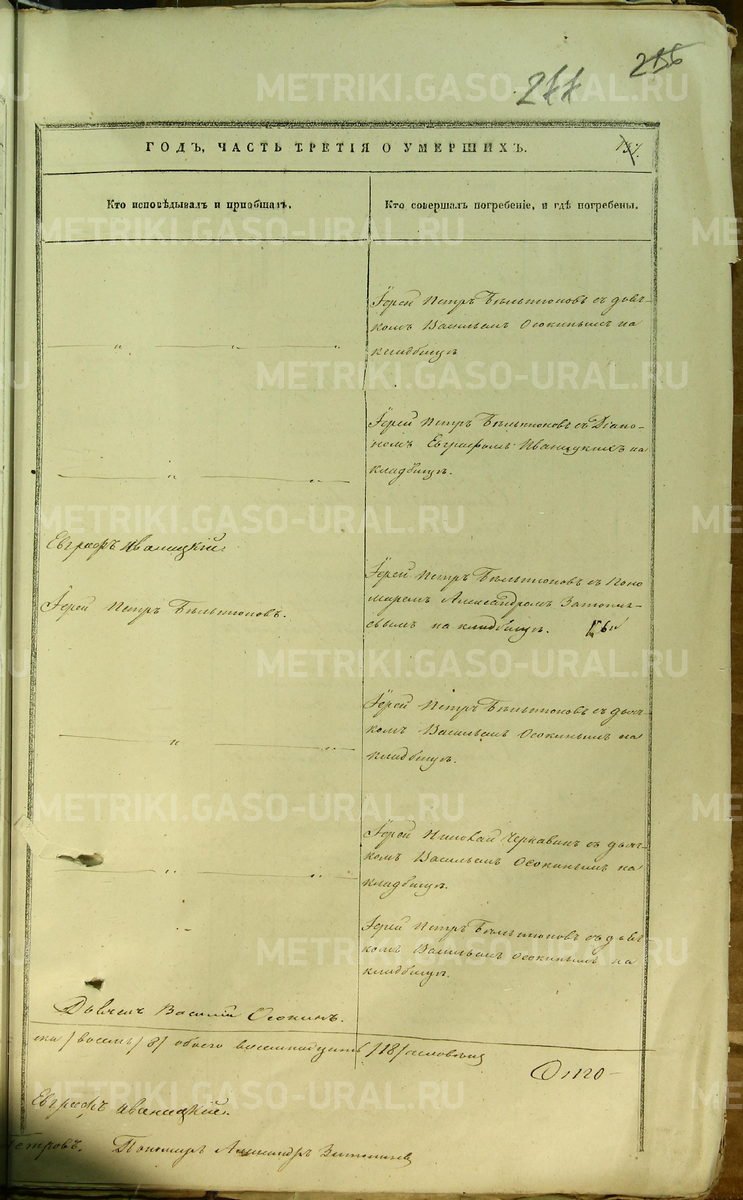 277
ГОДЪ, ЧАСТЬ ТРЕТІЯ О УМЕРШИХЪ.
Кто исповѣдывалъ и пріобщалъ.
Кто совершалъ погребеніе, и гдѣ погребены.
Іерей Петръ Бѣльтюковъ съ дьяч-
комъ Васильемъ Осокинымъ на
кладбищѣ
Іерей Петръ Бѣльтюковъ съ Діако-
номъ Евграфомъ Иваницкимъ на
кладбищѣ.
Евграфъ Иваницкій.
Іерей Петръ Бѣльтюковъ.
Іерей Петръ Бѣльтюковъ съ Поно
маремъ Александромъ
на кладбищѣ.
Іерей Петръ Бѣльтюковъ съ дьяч-
комъ Васильемъ Осокинымъ на
кладбищѣ.
Іерей Николай Черкавинъ съ дьяч-
комъ Васильемъ Осокинымъ на
кладбищѣ.
Іерей Петръ Бѣльтюковъ съ дьяч
комъ Васильемъ Осокинымъ на
кладбищѣ.
Дьячекъ Василій Осокинъ.
/восемь/ 8/ обоего восемнадцать /18/ человѣкъ
Евграфъ Иваницкій.
Петровъ. Пономарь Александръ
METRIKI.GASO-URAL.RU